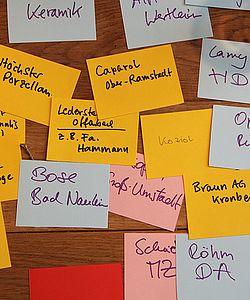 Keramik
Wertheim
Höchster
Porzellan
Caparol
Ober-Ramstadt
Camy
HD
Lederste
Offenbach
z.B. Fa.
Hammann
Koziol
Bose
Bad Nauheim
Groß-Umstadt
Braun AG
Kronber
MZ
Röhm
DA